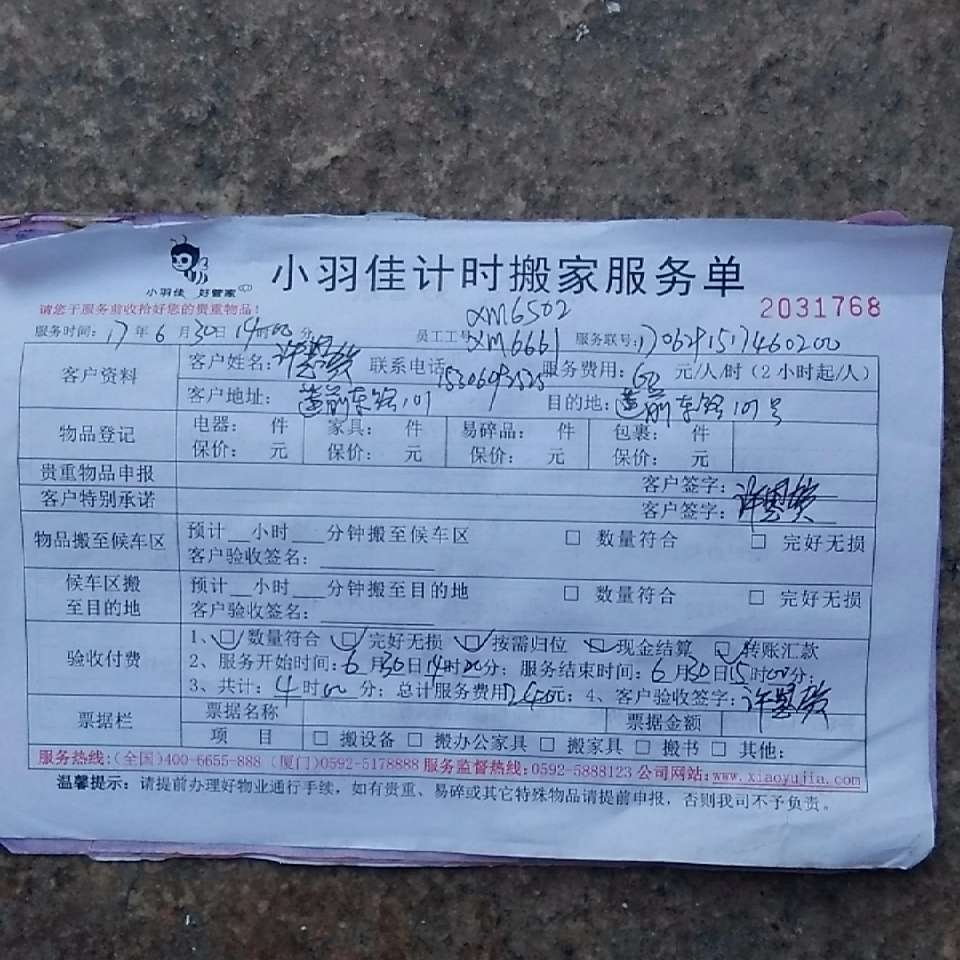 小羽佳计时搬家服务单
小羽佳 好管家
2031768
请您于服务前收拾好您的贵重物品!
XM6502
服务时间: 17 年 6 月 30 日 14 时 00 分 员工工号 XM6661 服务联号:
客户资料 客户姓名: 联系电话 服务费用: 60 元/人/时 (2小时起/人)
客户地址: 莲前东路101 目的地: 莲前东路101号
物品登记 电器: 件 家具: 件 易碎品: 件 包裹: 件
保价: 元 保价: 元 保价: 元 保价: 元
贵重物品申报 客户签字:
客户特别承诺 客户签字:
物品搬至候车区 预计__小时___分钟搬至候车区 □ 数量符合 □ 完好无损
客户验收签名:
候车区搬至目的地 预计__小时___分钟搬至目的地 □ 数量符合 □ 完好无损
客户验收签名:
验收付费 1、☑数量符合 ☑完好无损 ☑按需归位 ☑现金结算 ☑转账汇款
2、服务开始时间: 6 月 30 日 14 时 00 分; 服务结束时间: 6 月 30 日 15 时 00 分;
3、共计: 4 时 00 分; 总计服务费用 240 元; 4、客户验收签字:
票据栏 票据名称 票据金额
项 目 □ 搬设备 □ 搬办公家具 □ 搬家具 □ 搬书 □ 其他:
服务热线:(全国)400-6655-888 (厦门)0592-5178888 服务监督热线:0592-5888123 公司网站:www.xiaoyujia.com
温馨提示: 请提前办理好物业通行手续, 如有贵重、易碎或其它特殊物品请提前申报, 否则我司不予负责。